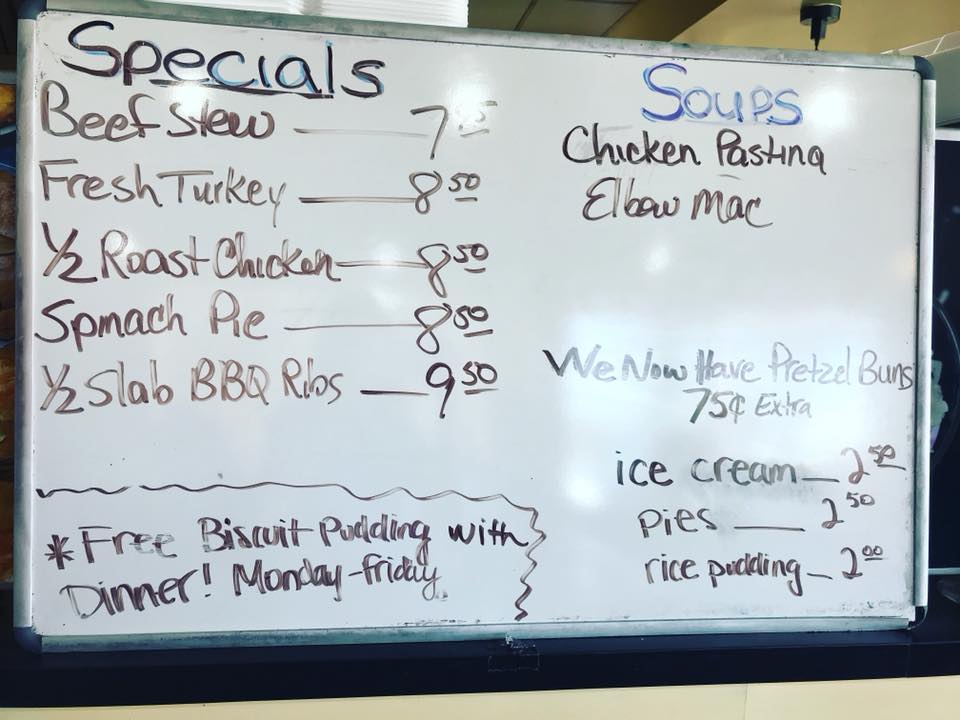 Specials
Beef Stew 7
Fresh Turkey 8 50
1/2 Roast Chicken 8 50
Spinach Pie 8 50
1/2 Slab BBQ Ribs 9 50
*Free Biscuit Pudding with
Dinner! Monday-friday
Soups
Chicken Pastina
Elbow Mac
We Now Have Pretzel Buns
75¢ Extra
ice cream 2 50
pies 2 50
rice pudding 2 00